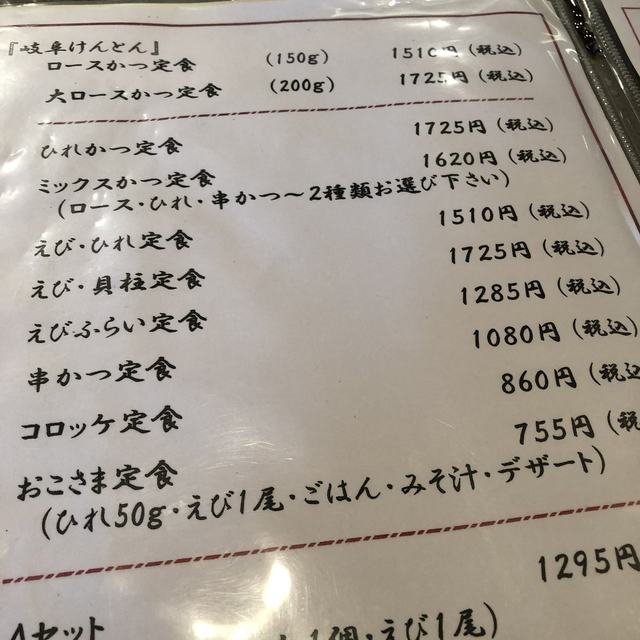 『岐阜けんとん』
ロースかつ定食 (150g) 1510円(税込)
大ロースかつ定食 (200g) 1725円(税込)
ひれかつ定食 1725円(税込)
ミックスかつ定食 1620円(税込)
(ロース・ひれ・串かつ～2種類お選び下さい)
えび・ひれ定食 1510円(税込)
えび・貝柱定食 1725円(税込)
えびふらい定食 1285円(税込)
串かつ定食 1080円(税込
コロッケ定食 860円(税込
おこさま定食 755円(税
(ひれ50g・えび1尾・ごはん・みそ汁・デザート)
1295円
Aセット 1個・えび1尾)